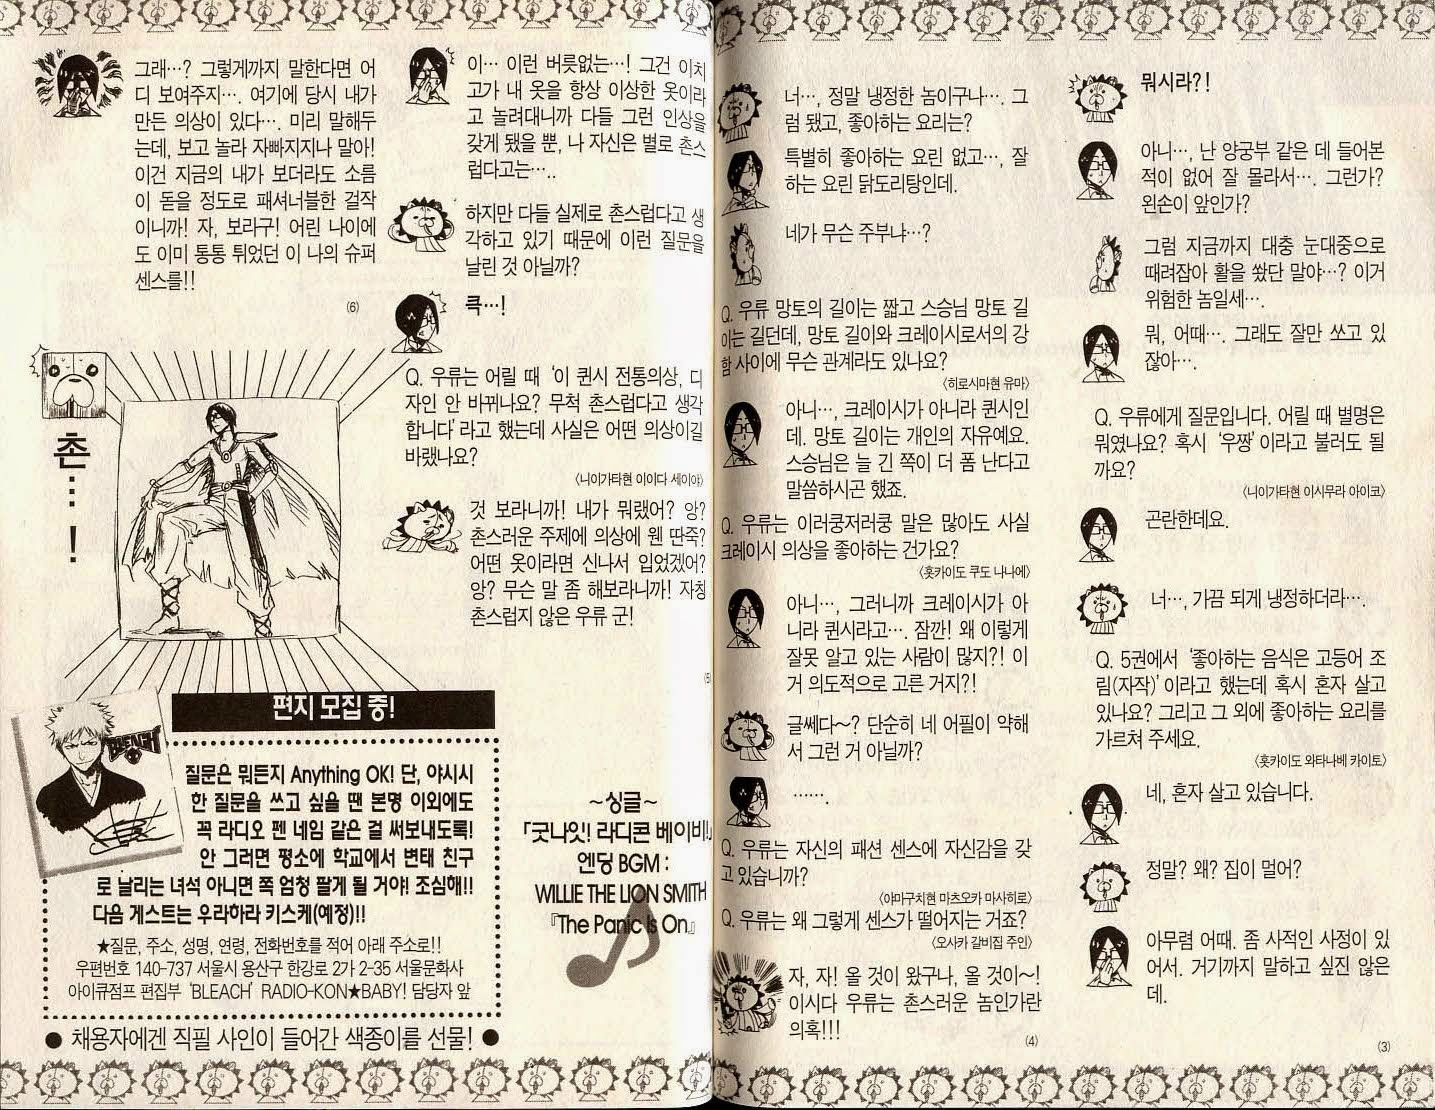 뭐시라?!
아니…, 난 양궁부 같은 데 들어본
적이 없어 잘 몰라서…. 그런가?
왼손이 앞인가?
그럼 지금까지 대충 눈대중으로
때려잡아 활을 쐈단 말야…? 이거
위험한 놈일세….
뭐, 어때…. 그래도 잘만 쏘고 있
잖아….
Q. 우류에게 질문입니다. 어릴 때 별명은
뭐였나요? 혹시 '우짱'이라고 불러도 될
까요?
〈니이가타현 이시무라 아이코〉
곤란한데요.
너…, 가끔 되게 냉정하더라….
Q. 5권에서 '좋아하는 음식은 고등어 조
림(자작)'이라고 했는데 혹시 혼자 살고
있나요? 그리고 그 외에 좋아하는 요리를
가르쳐 주세요.
〈홋카이도 와타나베 카이토〉
네, 혼자 살고 있습니다.
정말? 왜? 집이 멀어?
아무렴 어때. 좀 사적인 사정이 있
어서. 거기까지 말하고 싶진 않은
데.
(3)
너…, 정말 냉정한 놈이구나…. 그
럼 됐고, 좋아하는 요리는?
특별히 좋아하는 요린 없고…, 잘
하는 요린 닭도리탕인데.
네가 무슨 주부냐…?
Q. 우류 망토의 길이는 짧고 스승님 망토 길
이는 길던데, 망토 길이와 크레이시로서의 강
함 사이에 무슨 관계라도 있나요?
〈히로시마현 유마〉
아니…, 크레이시가 아니라 퀸시인
데. 망토 길이는 개인의 자유예요.
스승님은 늘 긴 쪽이 더 폼 난다고
말씀하시곤 했죠.
Q. 우류는 이러쿵저러쿵 말은 많아도 사실
크레이시 의상을 좋아하는 건가요?
〈홋카이도 쿠도 나나에〉
아니…, 그러니까 크레이시가 아
니라 퀸시라고…. 잠깐! 왜 이렇게
잘못 알고 있는 사람이 많지?! 이
거 의도적으로 고른 거지?!
글쎄다~? 단순히 네 어필이 약해
서 그런 거 아닐까?
…….
Q. 우류는 자신의 패션 센스에 자신감을 갖
고 있습니까?
〈야마구치현 마츠오카 마사히로〉
Q. 우류는 왜 그렇게 센스가 떨어지는 거죠?
〈오사카 갈비집 주인〉
자, 자! 올 것이 왔구나, 올 것이~!
이시다 우류는 촌스러운 놈인가란
의혹!!!
(4)
이… 이런 버릇없는…! 그건 이치
고가 내 옷을 항상 이상한 옷이라
고 놀려대니까 다들 그런 인상을
갖게 됐을 뿐, 나 자신은 별로 촌스
럽다고는….
하지만 다들 실제로 촌스럽다고 생
각하고 있기 때문에 이런 질문을
날린 것 아닐까?
큭…!
Q. 우류는 어릴 때 '이 퀸시 전통의상, 디
자인 안 바뀌나요? 무척 촌스럽다고 생각
합니다'라고 했는데 사실은 어떤 의상이길
바랬나요?
〈니이가타현 이이다 세이야〉
것 보라니까! 내가 뭐랬어? 앙?
촌스러운 주제에 의상에 웬 딴죽?
어떤 옷이라면 신나서 입었겠어?
앙? 무슨 말 좀 해보라니까! 자칭
촌스럽지 않은 우류 군!
(5)
~싱글~
「굿나잇! 라디콘 베이비!」
엔딩 BGM :
WILLIE THE LION SMITH
『The Panic is On』
그래…? 그렇게까지 말한다면 어
디 보여주지…. 여기에 당시 내가
만든 의상이 있다…. 미리 말해두
는데, 보고 놀라 자빠지지나 말아!
이건 지금의 내가 보더라도 소름
이 돋을 정도로 패셔너블한 걸작
이니까! 자, 보라구! 어린 나이에
도 이미 통통 튀었던 이 나의 슈퍼
센스를!!
(6)
촌…!
편지 모집 중!
BLEACH
질문은 뭐든지 Anything OK! 단, 야시시
한 질문을 쓰고 싶을 땐 본명 이외에도
꼭 라디오 펜 네임 같은 걸 써보내도록!
안 그러면 평소에 학교에서 변태 친구
로 날리는 녀석 아니면 쪽 엄청 팔게 될 거야! 조심해!!
다음 게스트는 우라하라 키스케(예정)!!
★질문, 주소, 성명, 연령, 전화번호를 적어 아래 주소로!!
우편번호 140-737 서울시 용산구 한강로 2가 2-35 서울문화사
아이큐점프 편집부 'BLEACH' RADIO-KON★BABY! 담당자 앞
● 채용자에겐 직필 사인이 들어간 색종이를 선물! ●